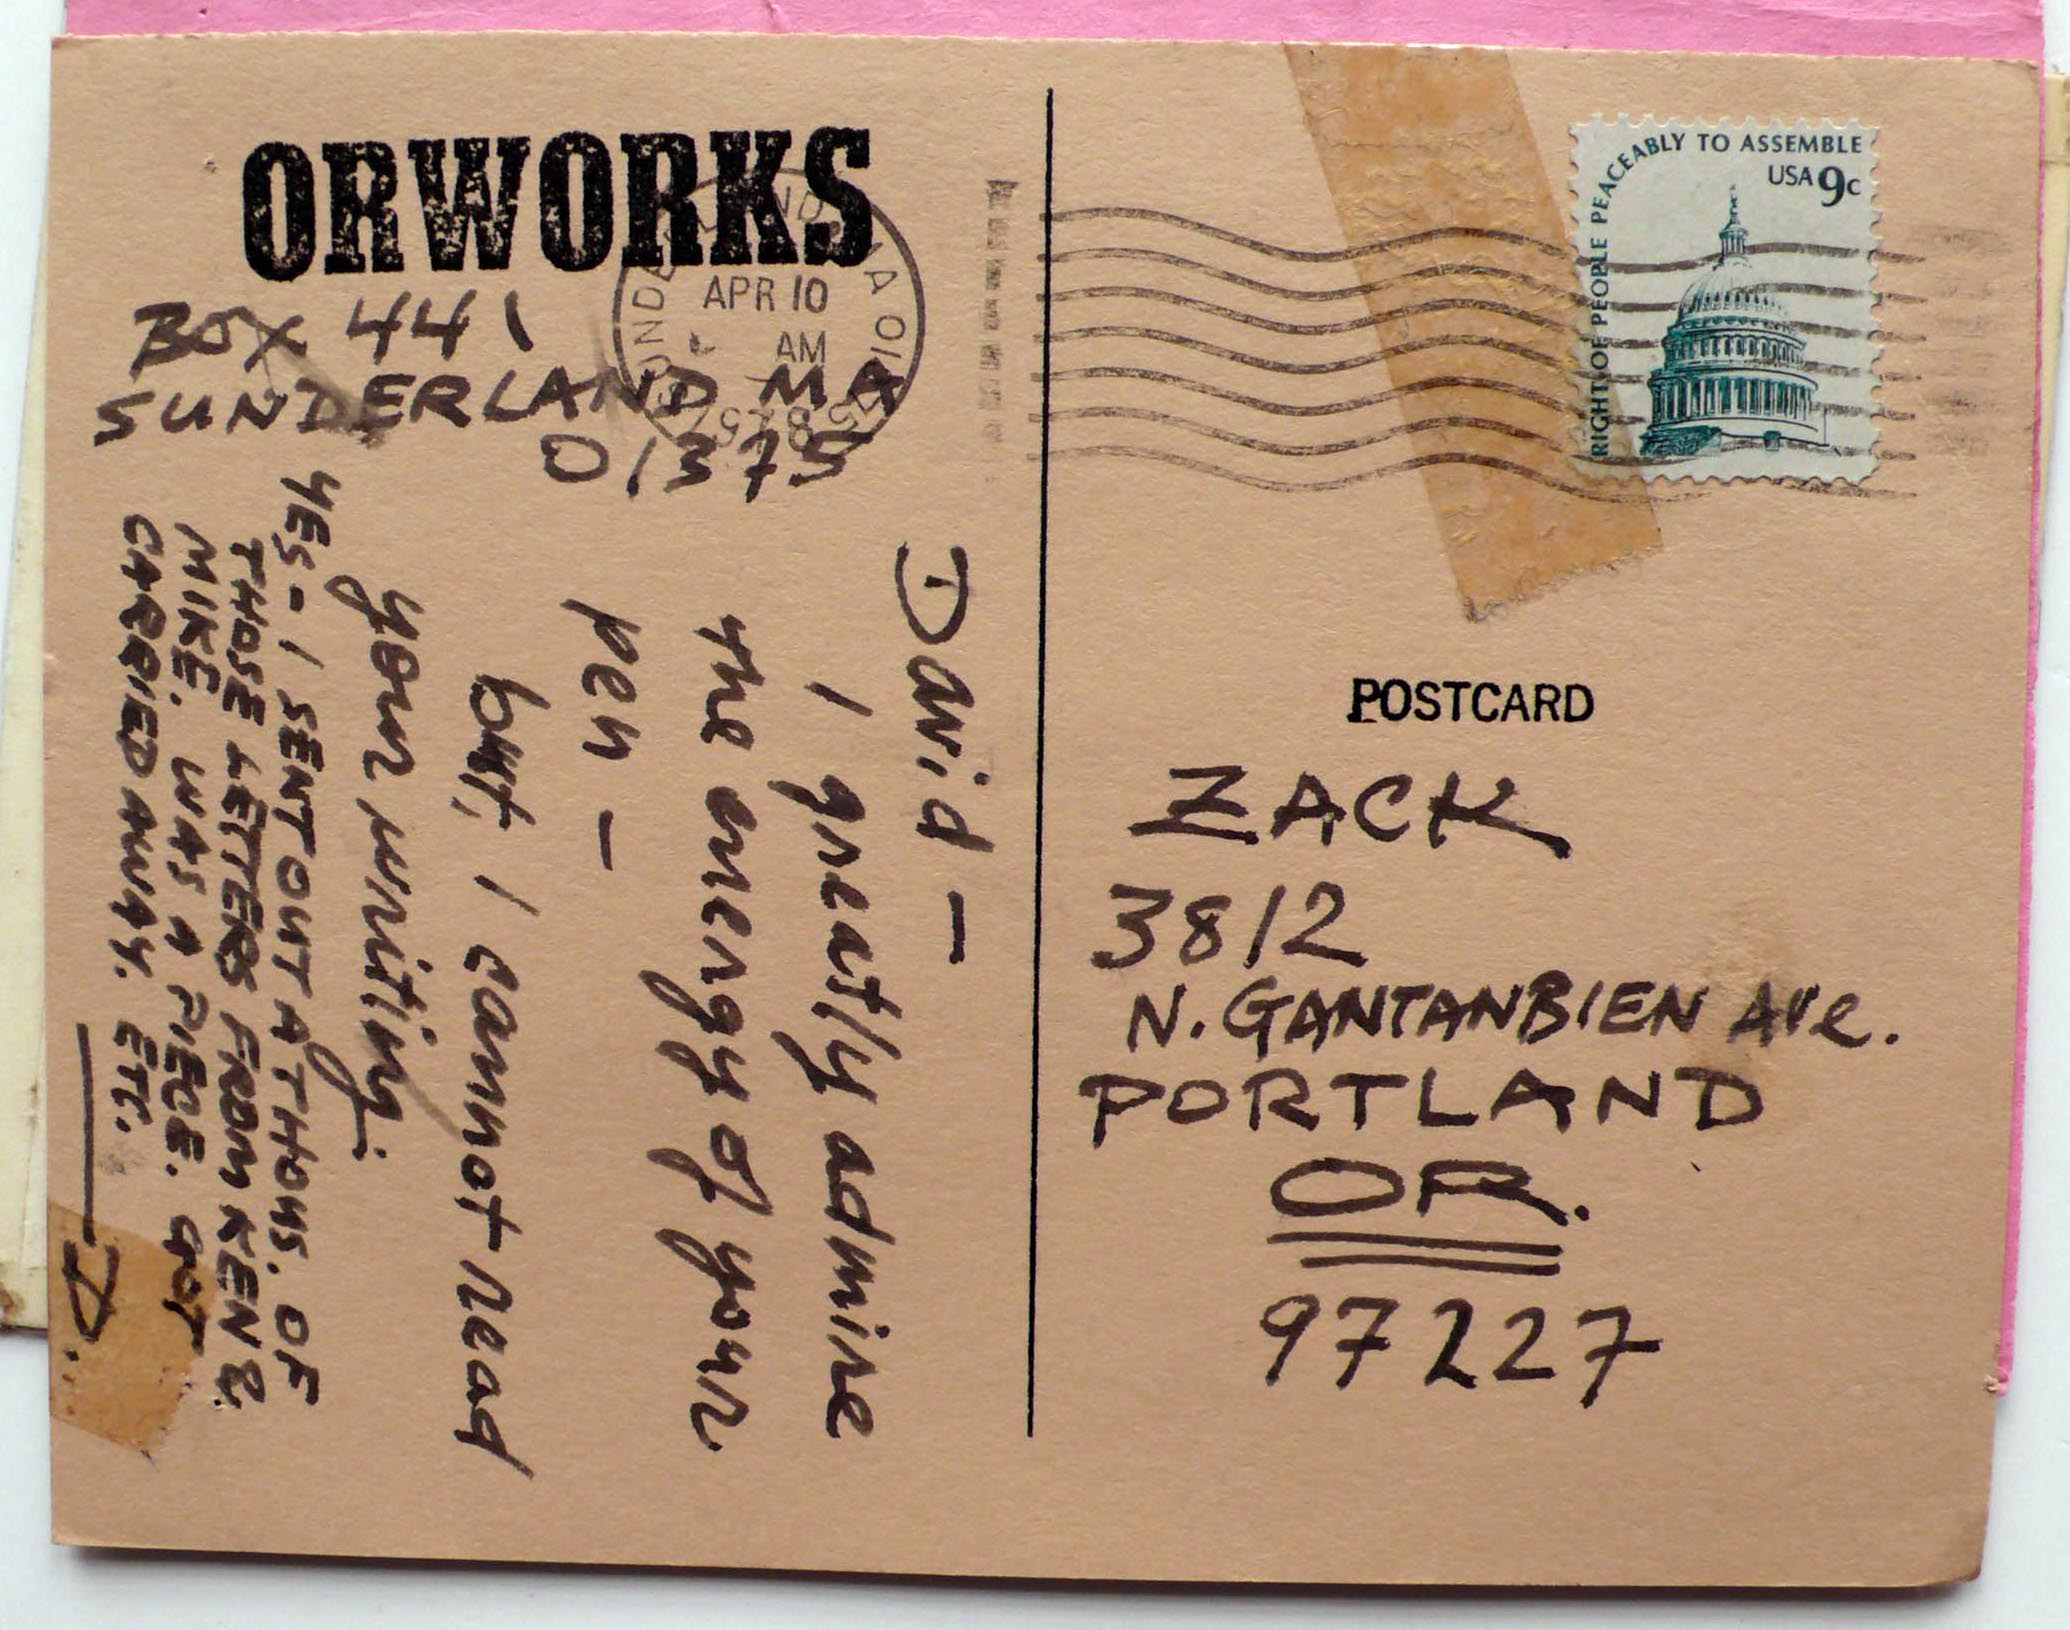 ORWORKS
BOX 44-
SUNDERLAND MA
01375
APR 10
AM
1978
David –
I greatly admire
the energy of your
pen –
but, I cannot read
your writing.
YES – I SENT OUT A THOUS. OF
THOSE LETTERS FROM KEN &
MIKE. WAS A PIECE. GOT
CARRIED AWAY. ETC.
D.
RIGHT OF PEOPLE PEACEABLY TO ASSEMBLE
USA 9c
POSTCARD
ZACK
3812
N. GANTANBIEN AVe.
PORTLAND
OR.
97227